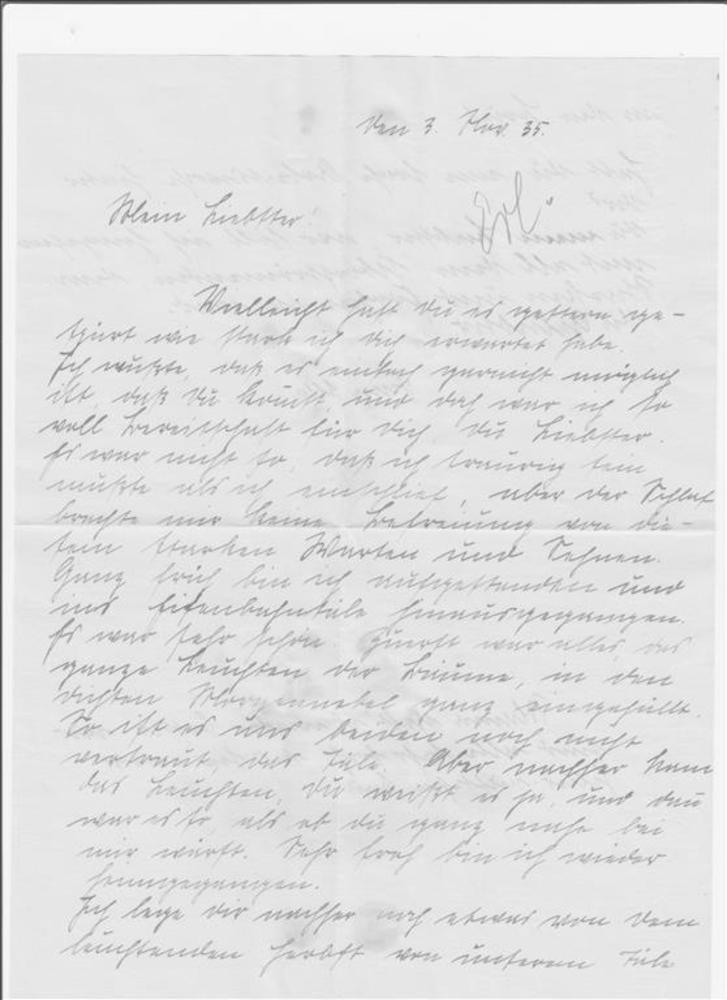 Den 3. Nov. 35.
Mein Liebster!
Erl.
Vielleicht hast Du es gestern ge-
spürt wie stark ich Dich erwartet habe.
Ich wußte, daß es einfach garnicht möglich
ist, daß Du kommst, und doch war ich so
voll Bereitschaft für Dich, Du Liebster.
Es war nicht so, daß ich traurig sein
mußte als ich einschlief, aber der Schlaf
brachte mir keine Befreiung von die-
sem starken Warten und Sehnen.
Ganz früh bin ich aufgestanden und
ins Eisenbahntäle hinausgegangen.
Es war sehr schön. Zuerst war alles, das
ganze Leuchten der Bäume, in den
dichten Morgennebel ganz eingehüllt.
So ist es uns beiden noch nicht
vertraut, das Täle. Aber nachher kam
das Leuchten, Du weißt es ja, und dann
war es so, als ob Du ganz nahe bei
mir wärst. Sehr froh bin ich wieder
heimgegangen.
Ich lege Dir nachher noch etwas von dem
leuchtenden Herbst von unserem Täle